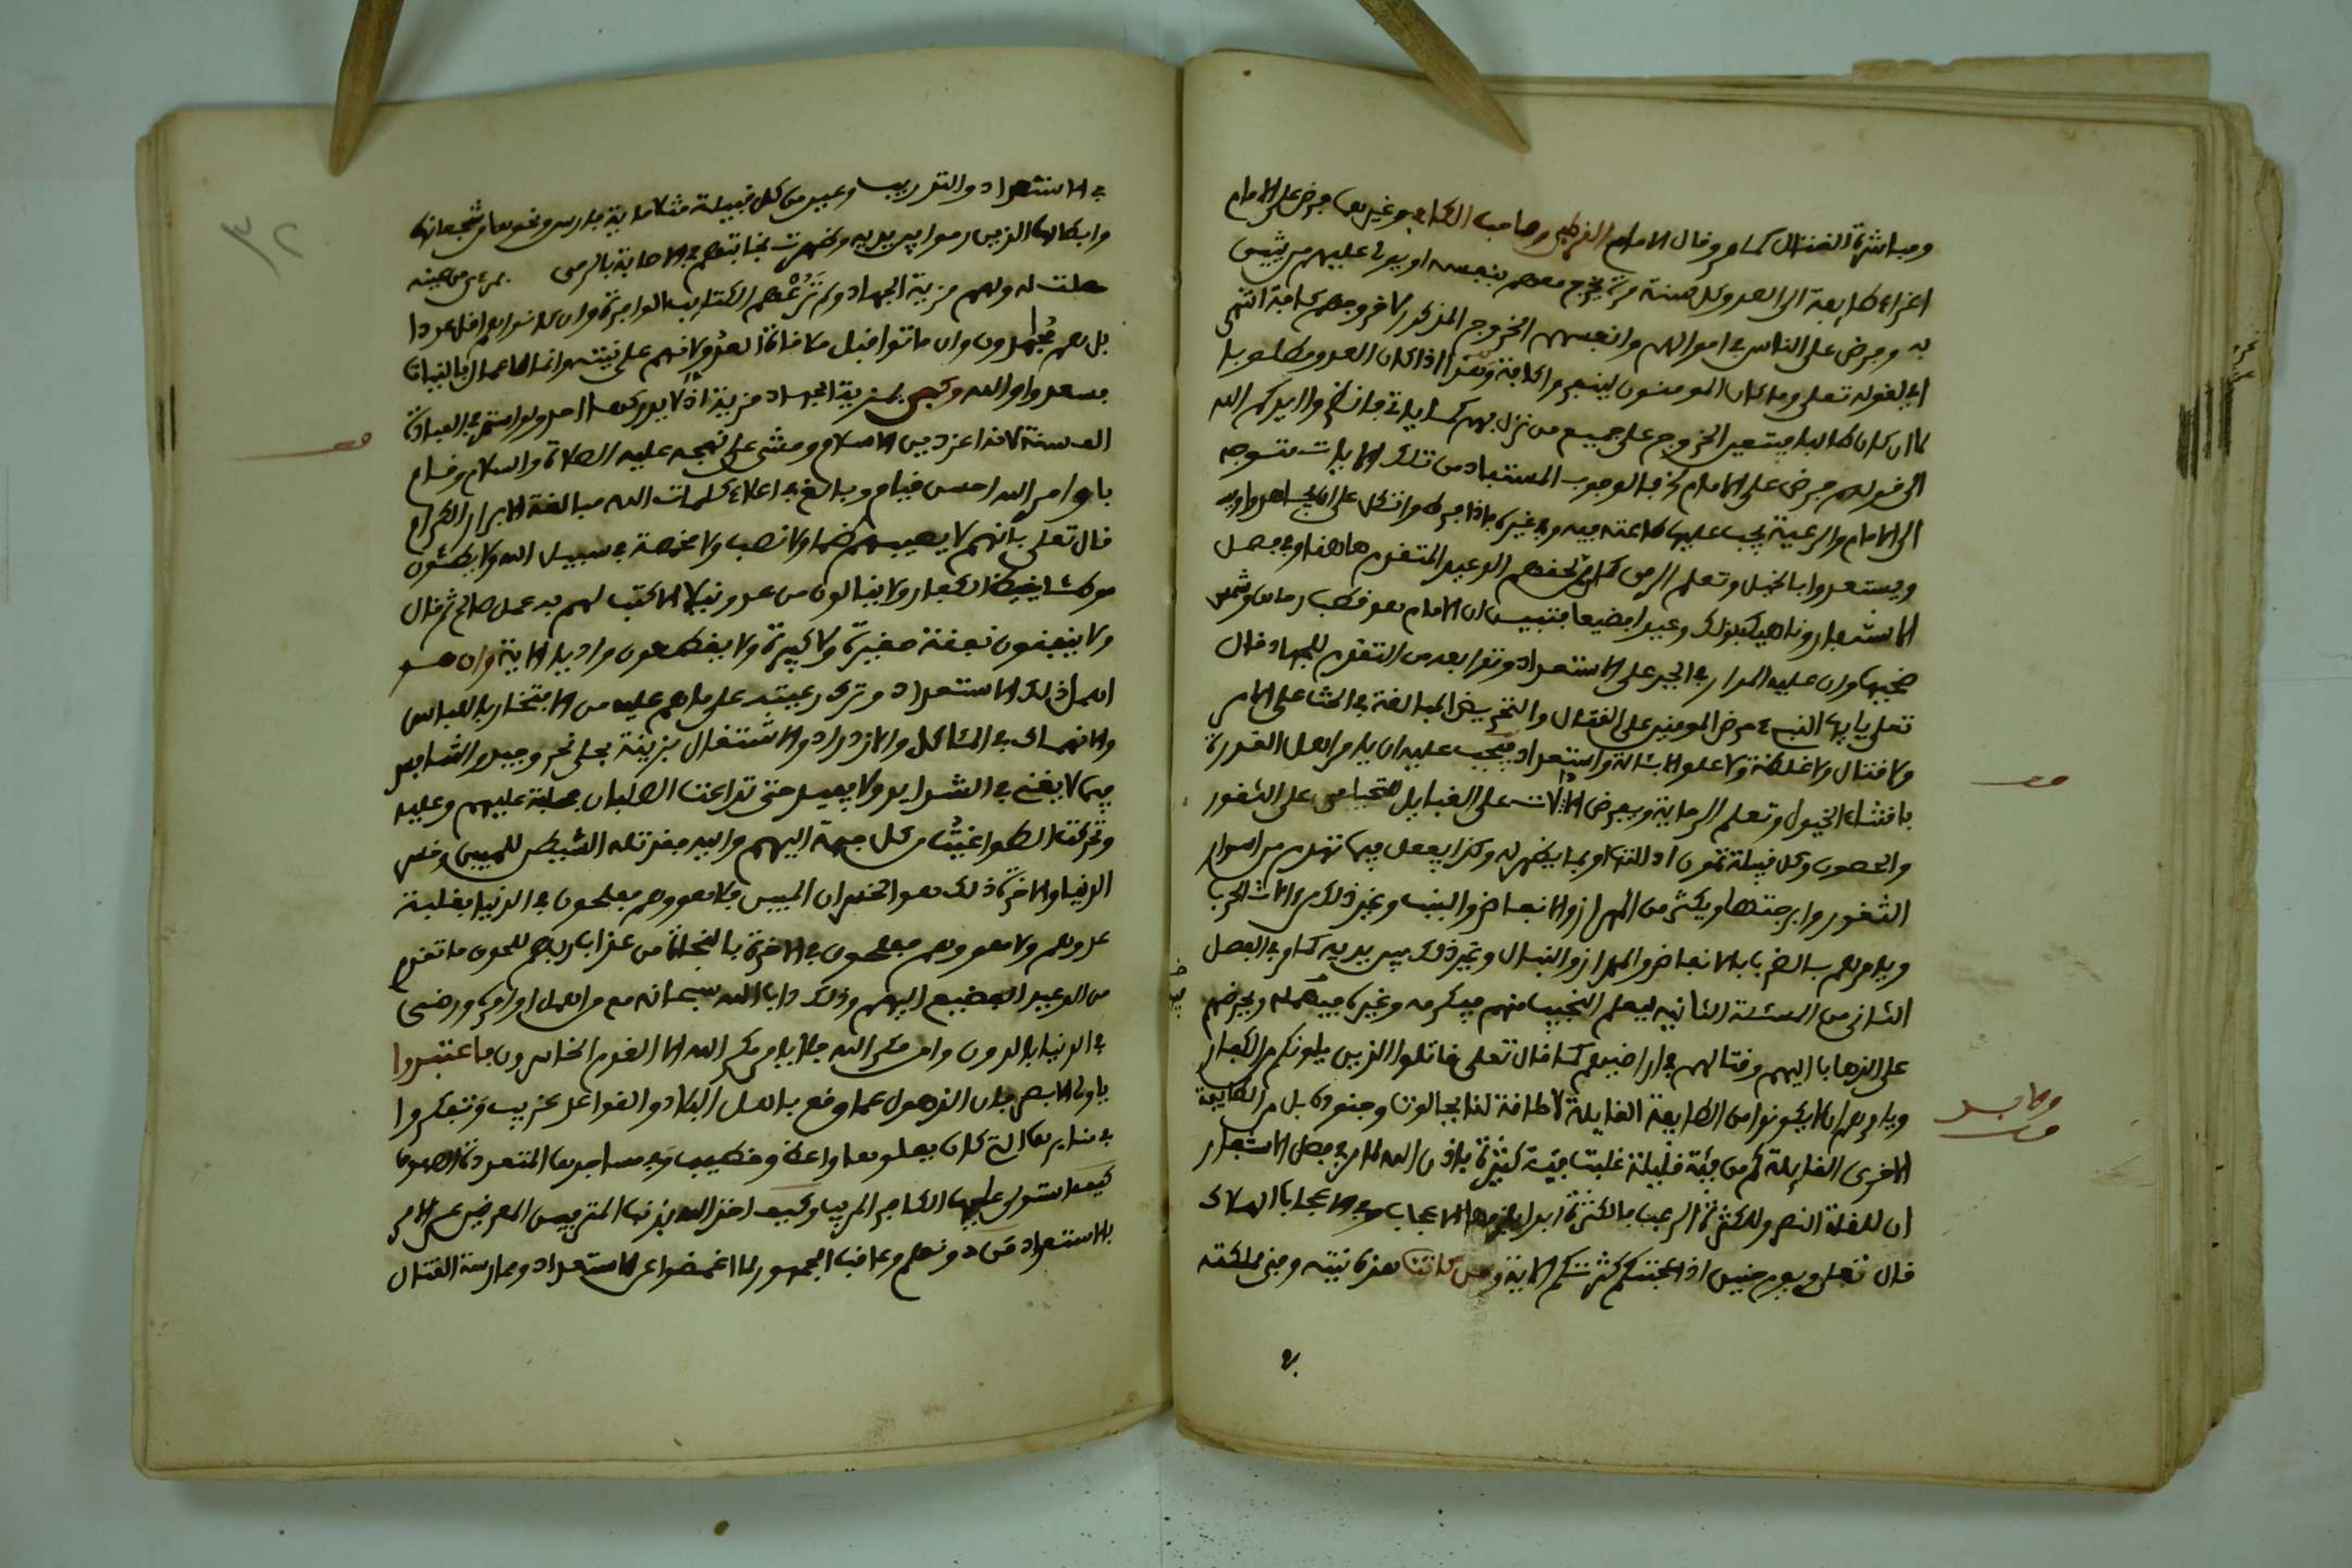 ومباشرة القتال كما مر وقال الامام القرطبي وصاحب الكافي وغيرهما فرض على الامام
اغزاء طايفة الى العدو كل سنة مرة يخرج معهم بنفسه او يولي عليهم من يثق
به وفرض على الناس في اموالهم وانفسهم الخروج المذكور لا خروجهم كافة انتهى
اي لقوله تعلى وما كان المومنون لينفروا كافة وهذا اذا كان العدو مطلوبا
لا ان كان طالبا فيتعين الخروج على جميع من نزل بهم كما ياتي فانظر وايدكم الله
الى قولهم فرض على الامام تجد الوجوب المستفاد من تلك الايات متوجه
الى الامام والرعية يجب عليها طاعته فيه وفي غيره فاذا فرط واتكل على
ويستعدوا بالخيل وتعلم الرمي لحقهم الوعيد المتقدم هاهنا وفي فصل
الاستنفار وناهيك بذلك وعيدا فضيعا فتبين ان الامام هو قطب رحاها وشمس
ضحيها وان عليه المدار في الجبر على الاستعداد وتقدا بعد من التقدم للجهاد قال
تعلى يايها النبيء حرض المومنين على القتال والتحريض المبالغة في الحث على الامر
ولا قتال ولا غلظة ولا علو الا بئالة واستعداد فيجب عليه ان يامر اهل القدرة
باقتناء الخيول وتعلم الرماية ويفرض الالات على القبايل على الثغور
والحصون وكل قبيلة تمون او بما يظهر له وكذا يفعل فيما تهدم من اسوار
الثغور وابرجتها ويكثر من المهراز والانفاض والبنب وغير ذلك من الات الحرب
ويامرهم بالضرب بالانفاض والمهراز والنبال وغير ذلك بين يديه كما مر في الفصل
الثاني من المسئلة الثانية ليعلم النجيب منهم فيكرمه وغيره فيهمله ويحرضهم
على الذهاب اليهم وقتالهم في اراضيهم كما قال تعلى قاتلوا الذين يلونكم من الكفار
ويامرهم ان لا يكونوا من الطايفة القايلة لا طاقة لنا بجالوت وجنوده بل من الطايفة
الاخرى القايلة كم من فئة قليلة غلبت فئة كثيرة باذن الله لما مر في فصل الاستنفار
ان للقلة النصر وللكثرة الرعب فالكثرة ابدا يلزمها الاعجاب ومع الاعجاب الهلاك
قال تعلى ويوم حنين اذ اعجبتكم كثرتكم الاية ومن كانت هذه نيته ومنى ملكته
في
في الاستعداد والتدريب وعين من كل قبيلة مثلا ماية فارس ونحوها من شجعانها
وابطالها الذين رموا بين يديه وظهرت نجابتهم في الاصابة بالرمي
حلت له ولهم مزية الجهاد ولم تزعهم الكتايب الوافرة وان كانوا هم اقل عددا
بل هم مجهدون وان ماتوا قبل ملاقاة العدو لانهم على نيتهم وانما الاعمال بالنيات
فسعدوا والله وكفى بمزية الجهاد مزية اذ لا يدركها احد ولو استمر في العبادة
الف سنة لانه اعز دين الاسلام ومشى على نهجه عليه الصلاة والسلام وقام
باوامر الله احسن قيام وبالغ في اعلاء كلمات الله مبالغة الابرار الكرام
قال تعلى بانهم لا يصيبهم ظما ولا نصب ولا مخمصة في سبيل الله ولا يطئون
موطئا يغيظ الكفار ولا ينالون من عدو نيلا الا كتب لهم به عمل صالح ثم قال
ولا ينفقون نفقة صغيرة ولا كبيرة ولا يقطعون واديا الاية وان هو
اهمل ذلك الاستعداد وترك رعيته على ما هم عليه من الافتخار باللباس
والانهماك في المئاكل والازدراد والاشتغال بزينة
فيما لا يغني في الشدايد ولا يفيد حتى تداعت الصلبان محلبة عليهم وعليه
وتحركت الطواغيت من كل جهة اليهم واليه فقد تله الشيطن للجبين وخسر
الدنيا والاخرة ذلك هو الخسران المبين فلا هو وهم مفلحون في الدنيا بغلبة
عدوهم ولا هو وهم مفلحون في الاخرة بالنجاة من عذاب ربهم للحوق ما تقدم
من الوعيد الفضيع اليهم وذلك داب الله سبحانه مع من اهمل اوامره ورضى
في الدنيا بالدون وامن مكر الله فلا يامن مكر الله الا القوم الخاسرون فاعتبروا
ياولي الابصر فان الذهول عما وقع باهل البلاد والقواعد غريب وتفكروا
في منابرها التي كان يعلوها واعظ وخطيب وفي مساجدها المتعددة الصفوف
كيف استولى عليها الكافر المريب وكيف اخذ الله بذنب المترفين المعرضين عن الامر
بالاستعداد من دونهم وعاقب الجمهور لما اغمضوا عن الاستعداد وممارسة القتال